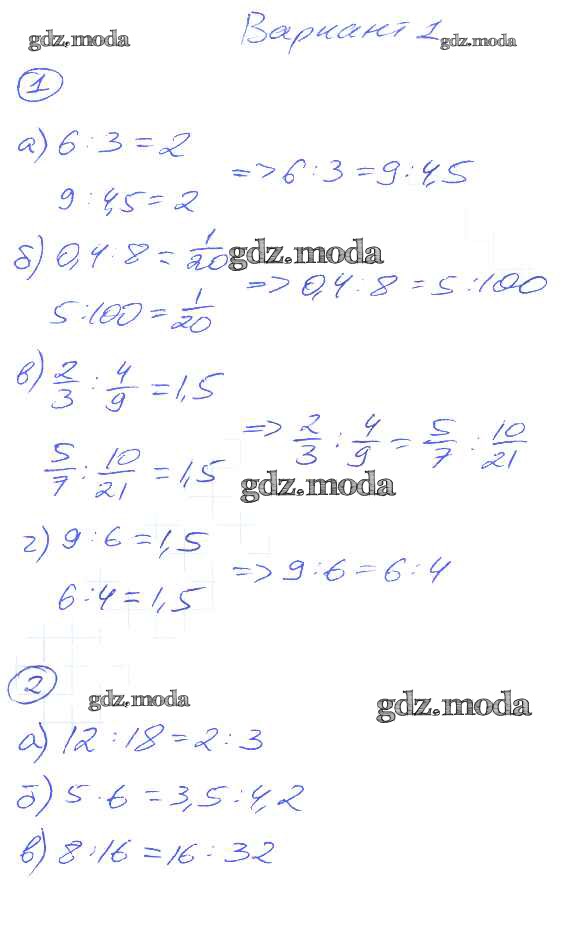 gdz.moda
Вариант 1
gdz.moda
1
а) 6 : 3 = 2
9 : 4,5 = 2
=> 6 : 3 = 9 : 4,5
б) 0,4 : 8 = 1/20
gdz.moda
5 : 100 = 1/20
=> 0,4 : 8 = 5 : 100
в) 2/3 : 4/9 = 1,5
5/7 : 10/21 = 1,5
=> 2/3 : 4/9 = 5/7 : 10/21
gdz.moda
г) 9 : 6 = 1,5
6 : 4 = 1,5
=> 9 : 6 = 6 : 4
2
gdz.moda
gdz.moda
а) 12 : 18 = 2 : 3
б) 5 : 6 = 3,5 : 4,2
в) 8 : 16 = 16 : 32